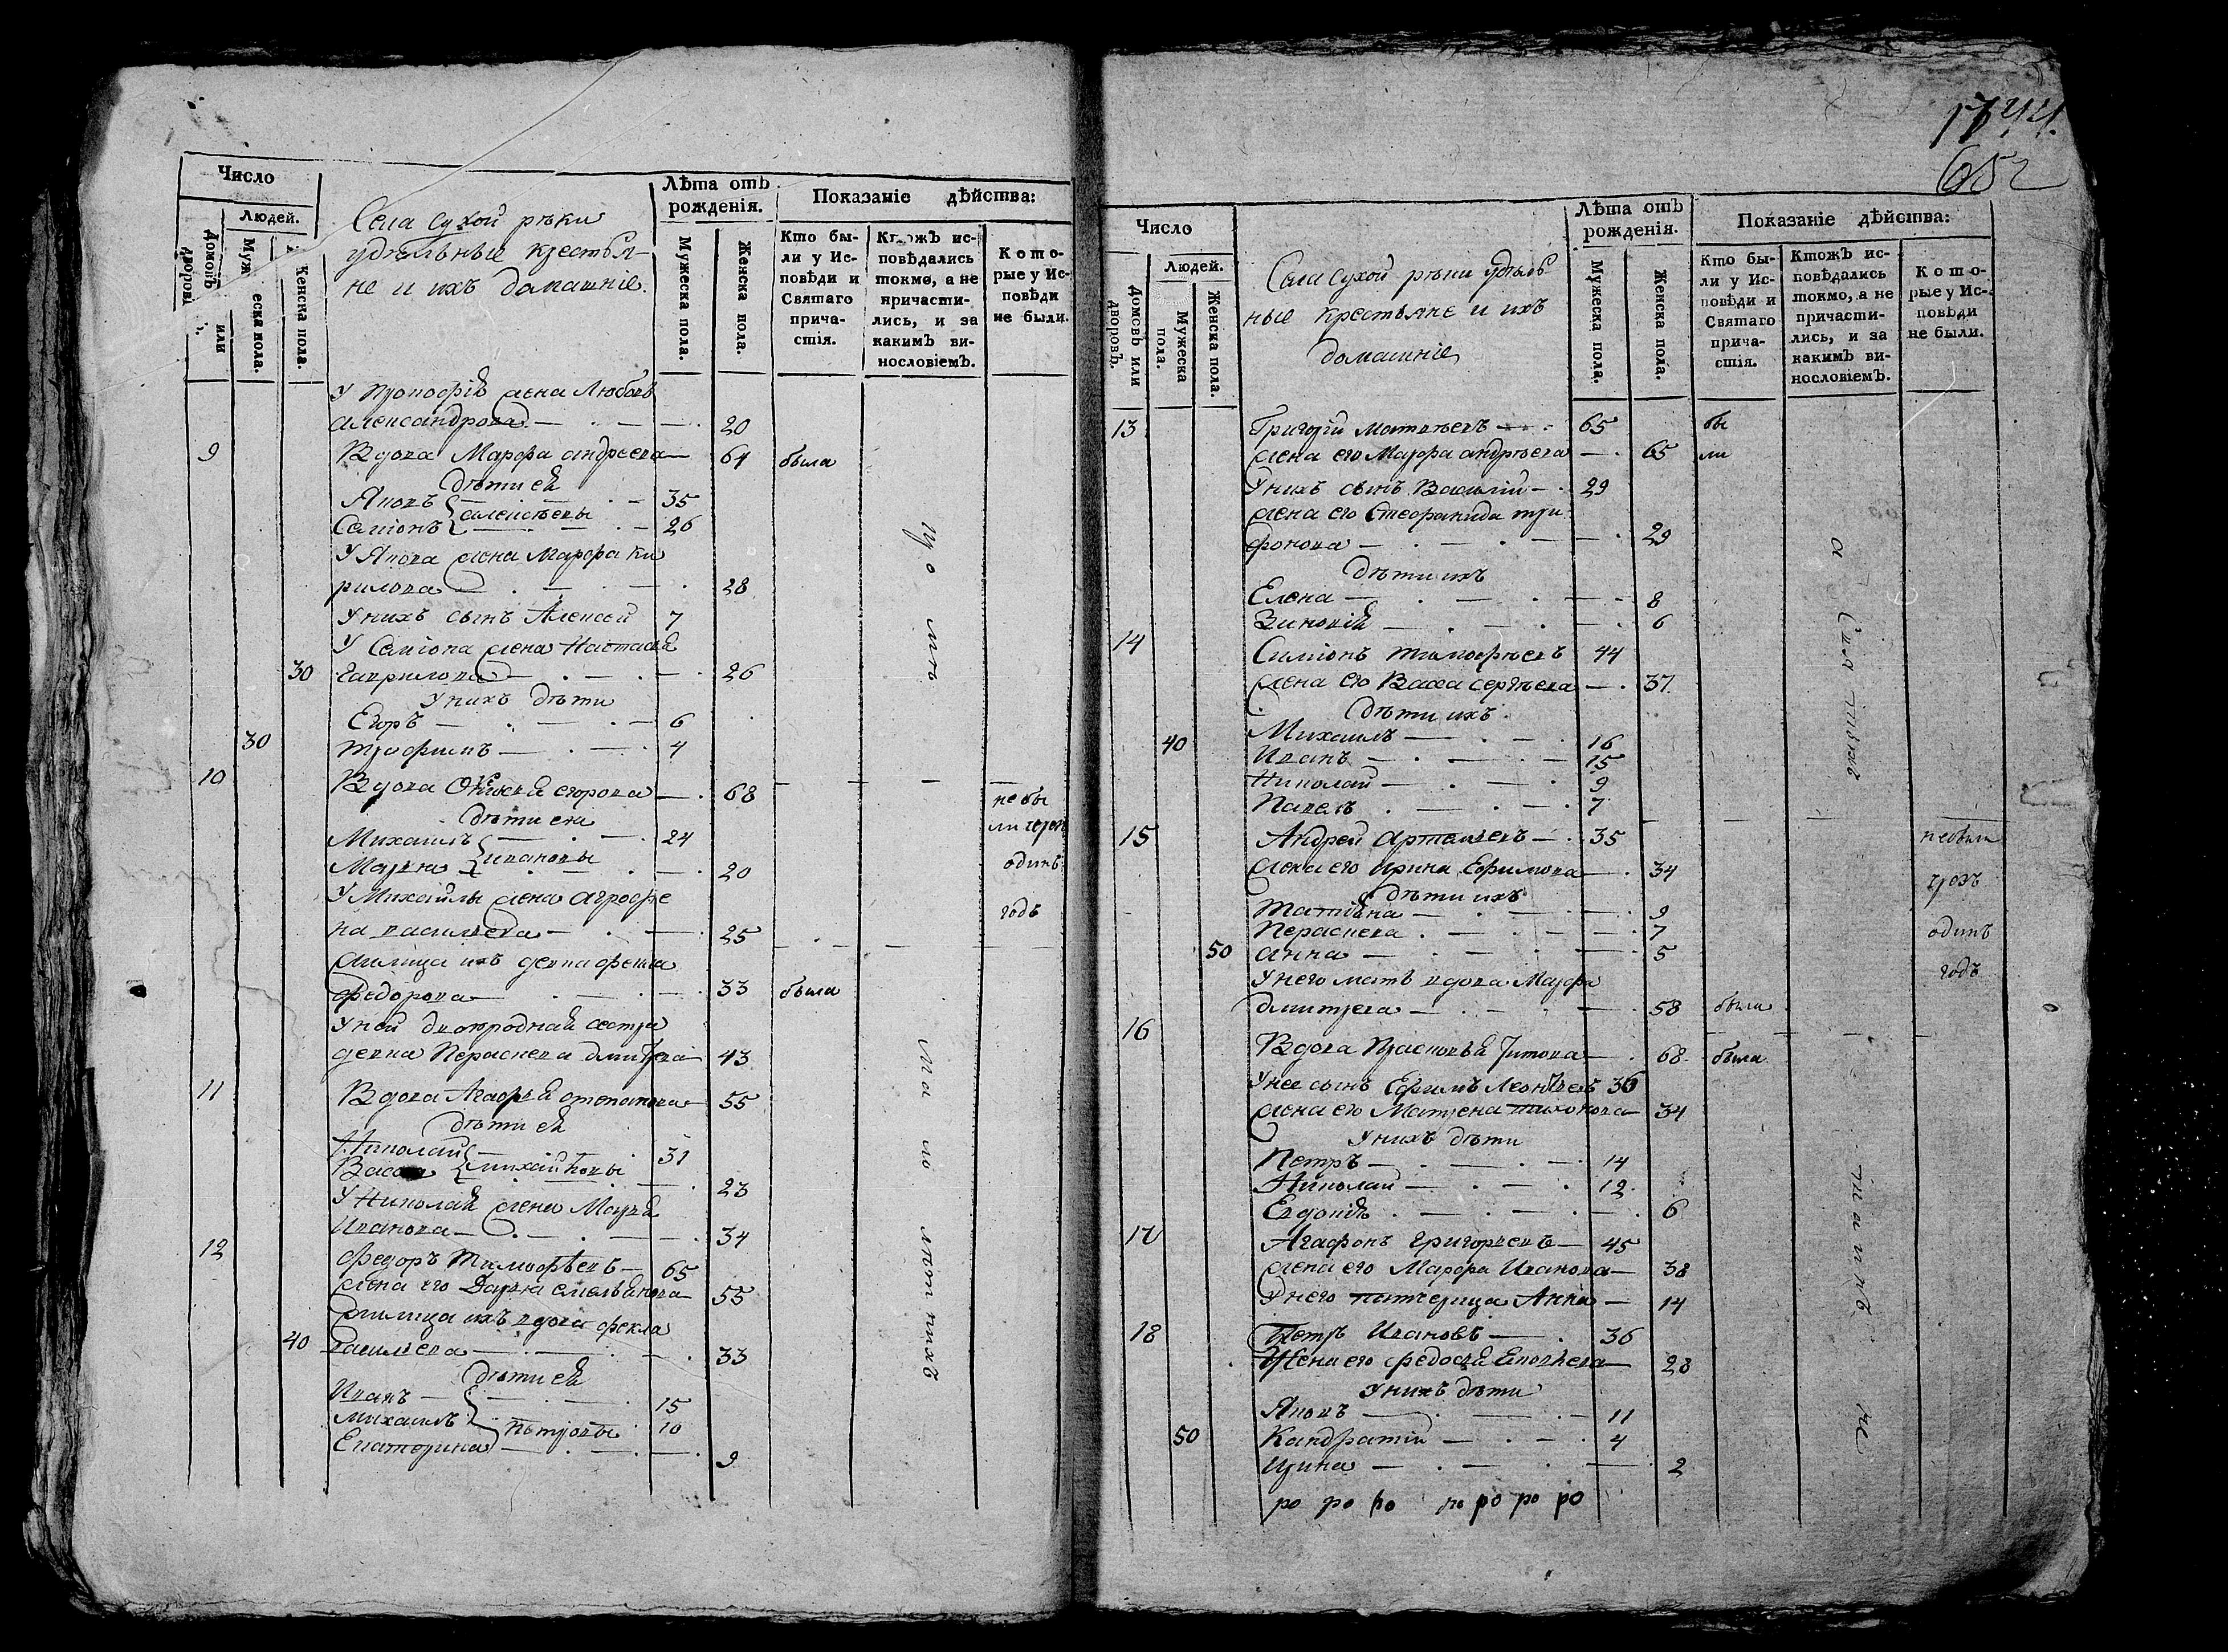 Число
Людей.
Домовъ или дворовъ.
Мужеска пола.
Женска пола.
Села Сухой рѣки
удѣльные крестья-
не и ихъ домашніе.
Лѣта отъ
рожденія.
Мужеска пола.
Женска пола.
Показаніе дѣйства:
Кто бы-
ли у Ис-
повѣди и
Святаго
прича-
стія.
Ктожъ ис-
повѣдались
токмо, а не
причасти-
лись, и за
какимъ ви-
нословіемъ.
Кото-
рые у Ис-
повѣди
не были.
У Прокофія жена Любовь
Александрова 20
9 Вдова Марфа Андреева 64 была
Дѣти ея
Яковъ 35
Алексѣевы
Семіонъ 26
У Якова жена Марфа Ки
рилова 28
У нихъ сынъ Алексей 7
У Семіона жена Настасья
30 Гаврилова 26
У нихъ дѣти
Егоръ 6
30 Трофимъ 4
10 Вдова Егорова 68 не бы
Дѣти ея ли чрезъ
Михаилъ 24
Ивановы одинъ
Марѳа 20
У Михаилы жена Аграфе годъ
на Васильева 25
Жилица ихъ девка
Федорова 33 была
У ней двоюродная сестра
девка Пераскева Дмитрева 43
11 Вдова Агафья Степанова 55
Дѣти ея
Николай 31
Михайловы
Васса 23
У Николая жена Марья
Иванова 34
12 Федоръ Тимофѣевъ 65
жена его Дарья Емельянова 55
Жилица ихъ вдова Фекла
40 Васильева 33
Дѣти ея
Иванъ 15
Михаилъ Петровы 10
Екатерина 9
1744.
652
Число
Людей.
Домовъ или дворовъ.
Мужеска пола.
Женска пола.
Села Сухой рѣки удѣль
ные крестьяне и ихъ
домашніе
Лѣта отъ
рожденія.
Мужеска пола.
Женска пола.
Показаніе дѣйства:
Кто бы-
ли у Ис-
повѣди и
Святаго
прича-
стія.
Ктожъ ис-
повѣдались
токмо, а не
причасти-
лись, и за
какимъ ви-
нословіемъ.
Кото-
рые у Ис-
повѣди
не были.
13 Григорій Матвѣевъ 65 бы
жена его Марфа Андрѣева 65 ли
У нихъ сынъ Василій 29
жена его Стефанида Три
фонова 29
Дѣти ихъ
Елена 8
Зиновія 6
14 Симіонъ Тимофѣевъ 44
жена его Васса Сергѣева 37
Дѣти ихъ
40 Михаилъ 16
Иванъ 15
Николай 9
Павелъ 7
15 Андрей Артемьевъ 35 не были
жена его Ирина Ефимова 34 чрезъ
Дѣти ихъ
Татіяна 9
Пераскева 7 одинъ
50 Анна 5 годъ
У него мать вдова Марфа
Дмитрева 58 была
16 Вдова Прасковья Титова 68 была
У нее сынъ Ефимъ Леонтьевъ 36
жена его Матрена Тихонова 34
У нихъ дѣти
Петръ 14
Николай 12
Евдокія 6
17 Агафонъ Григорьевъ 45
жена его Марфа Иванова 38
У него патчерица Анна 14
18 Петръ Ивановъ 36
Жена его Федосья 28
У нихъ дѣти
Яковъ 11
50 Кандратій 4
Ирина 2
ро ро ро ро ро ро ро